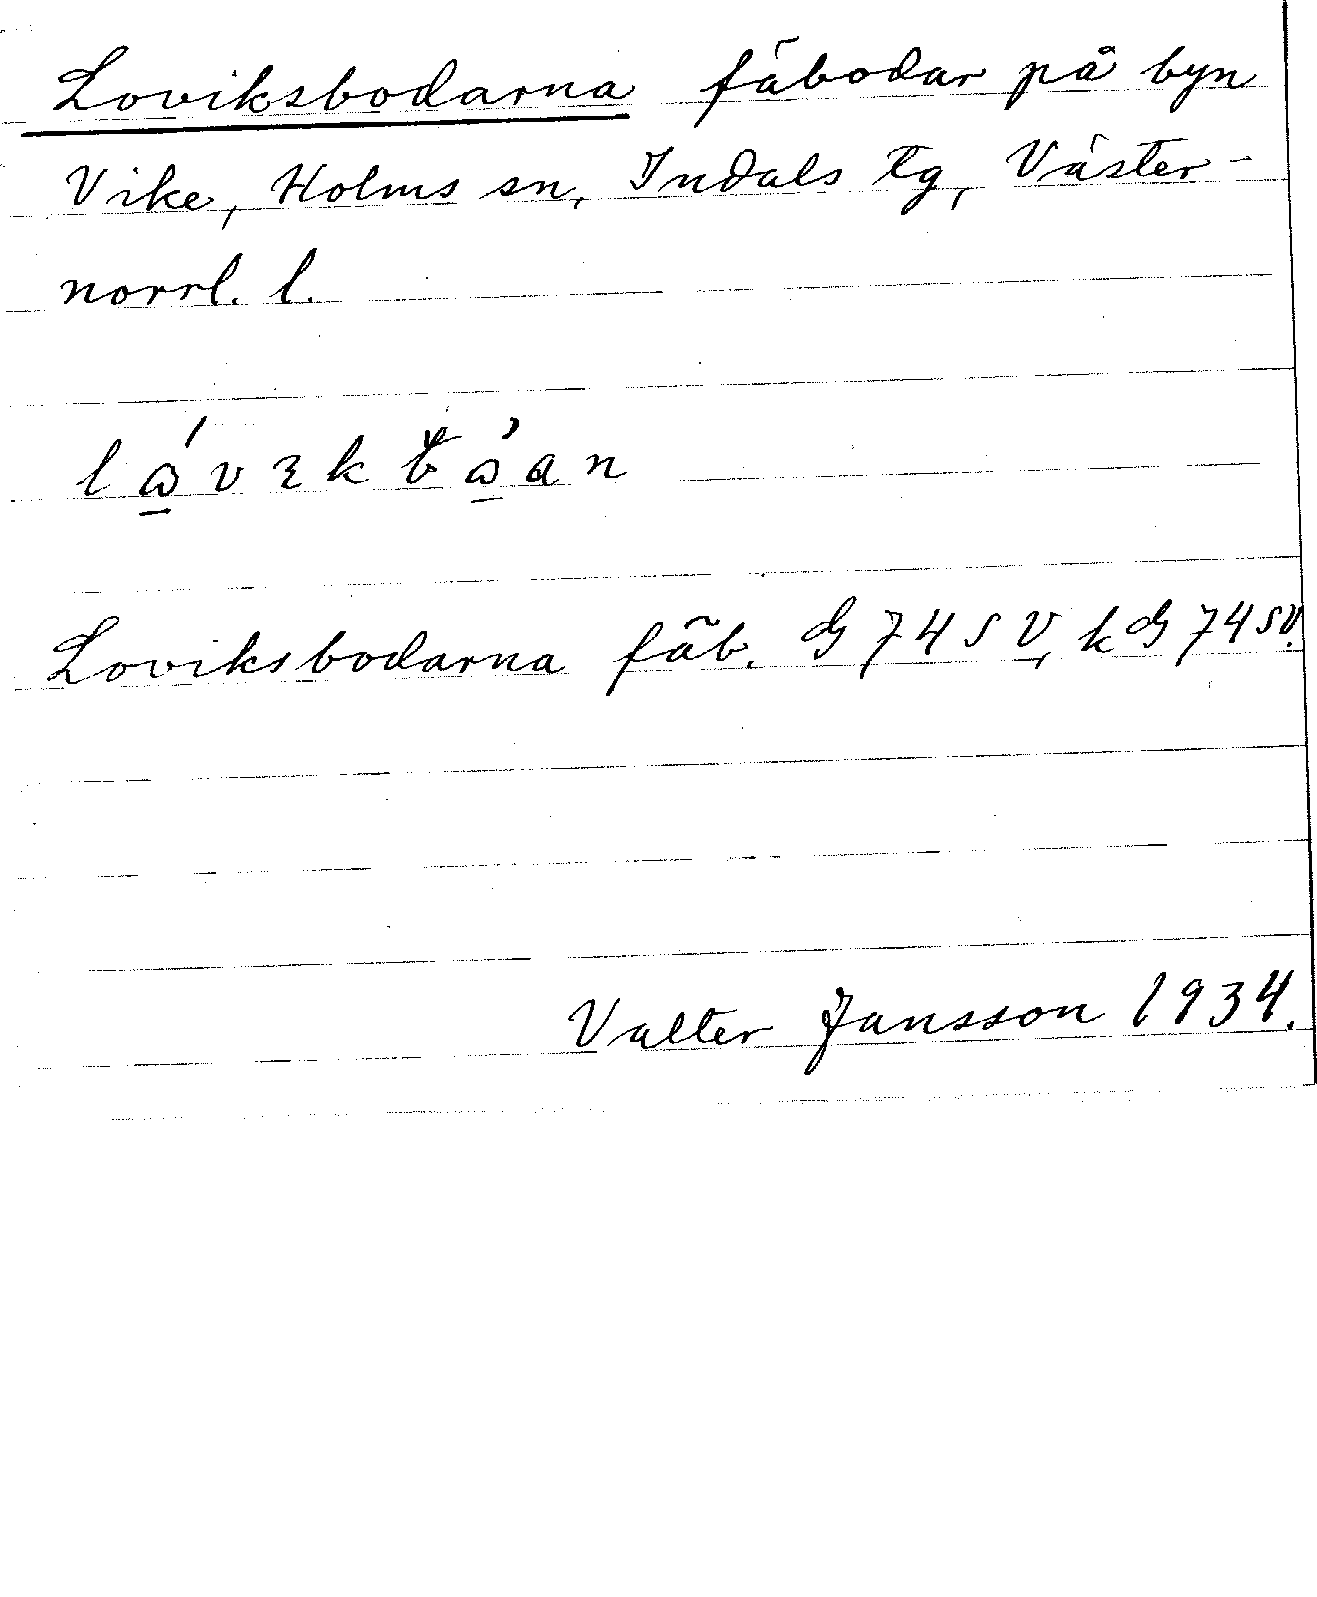 Loviksbodarna fäbodar på byn
Vike, Holms sn, Indals tg, Väster-
norrl. l.
Loviksbodarna fäb. G 74 SV, k G 74 SV.
Valter Jansson 1934.